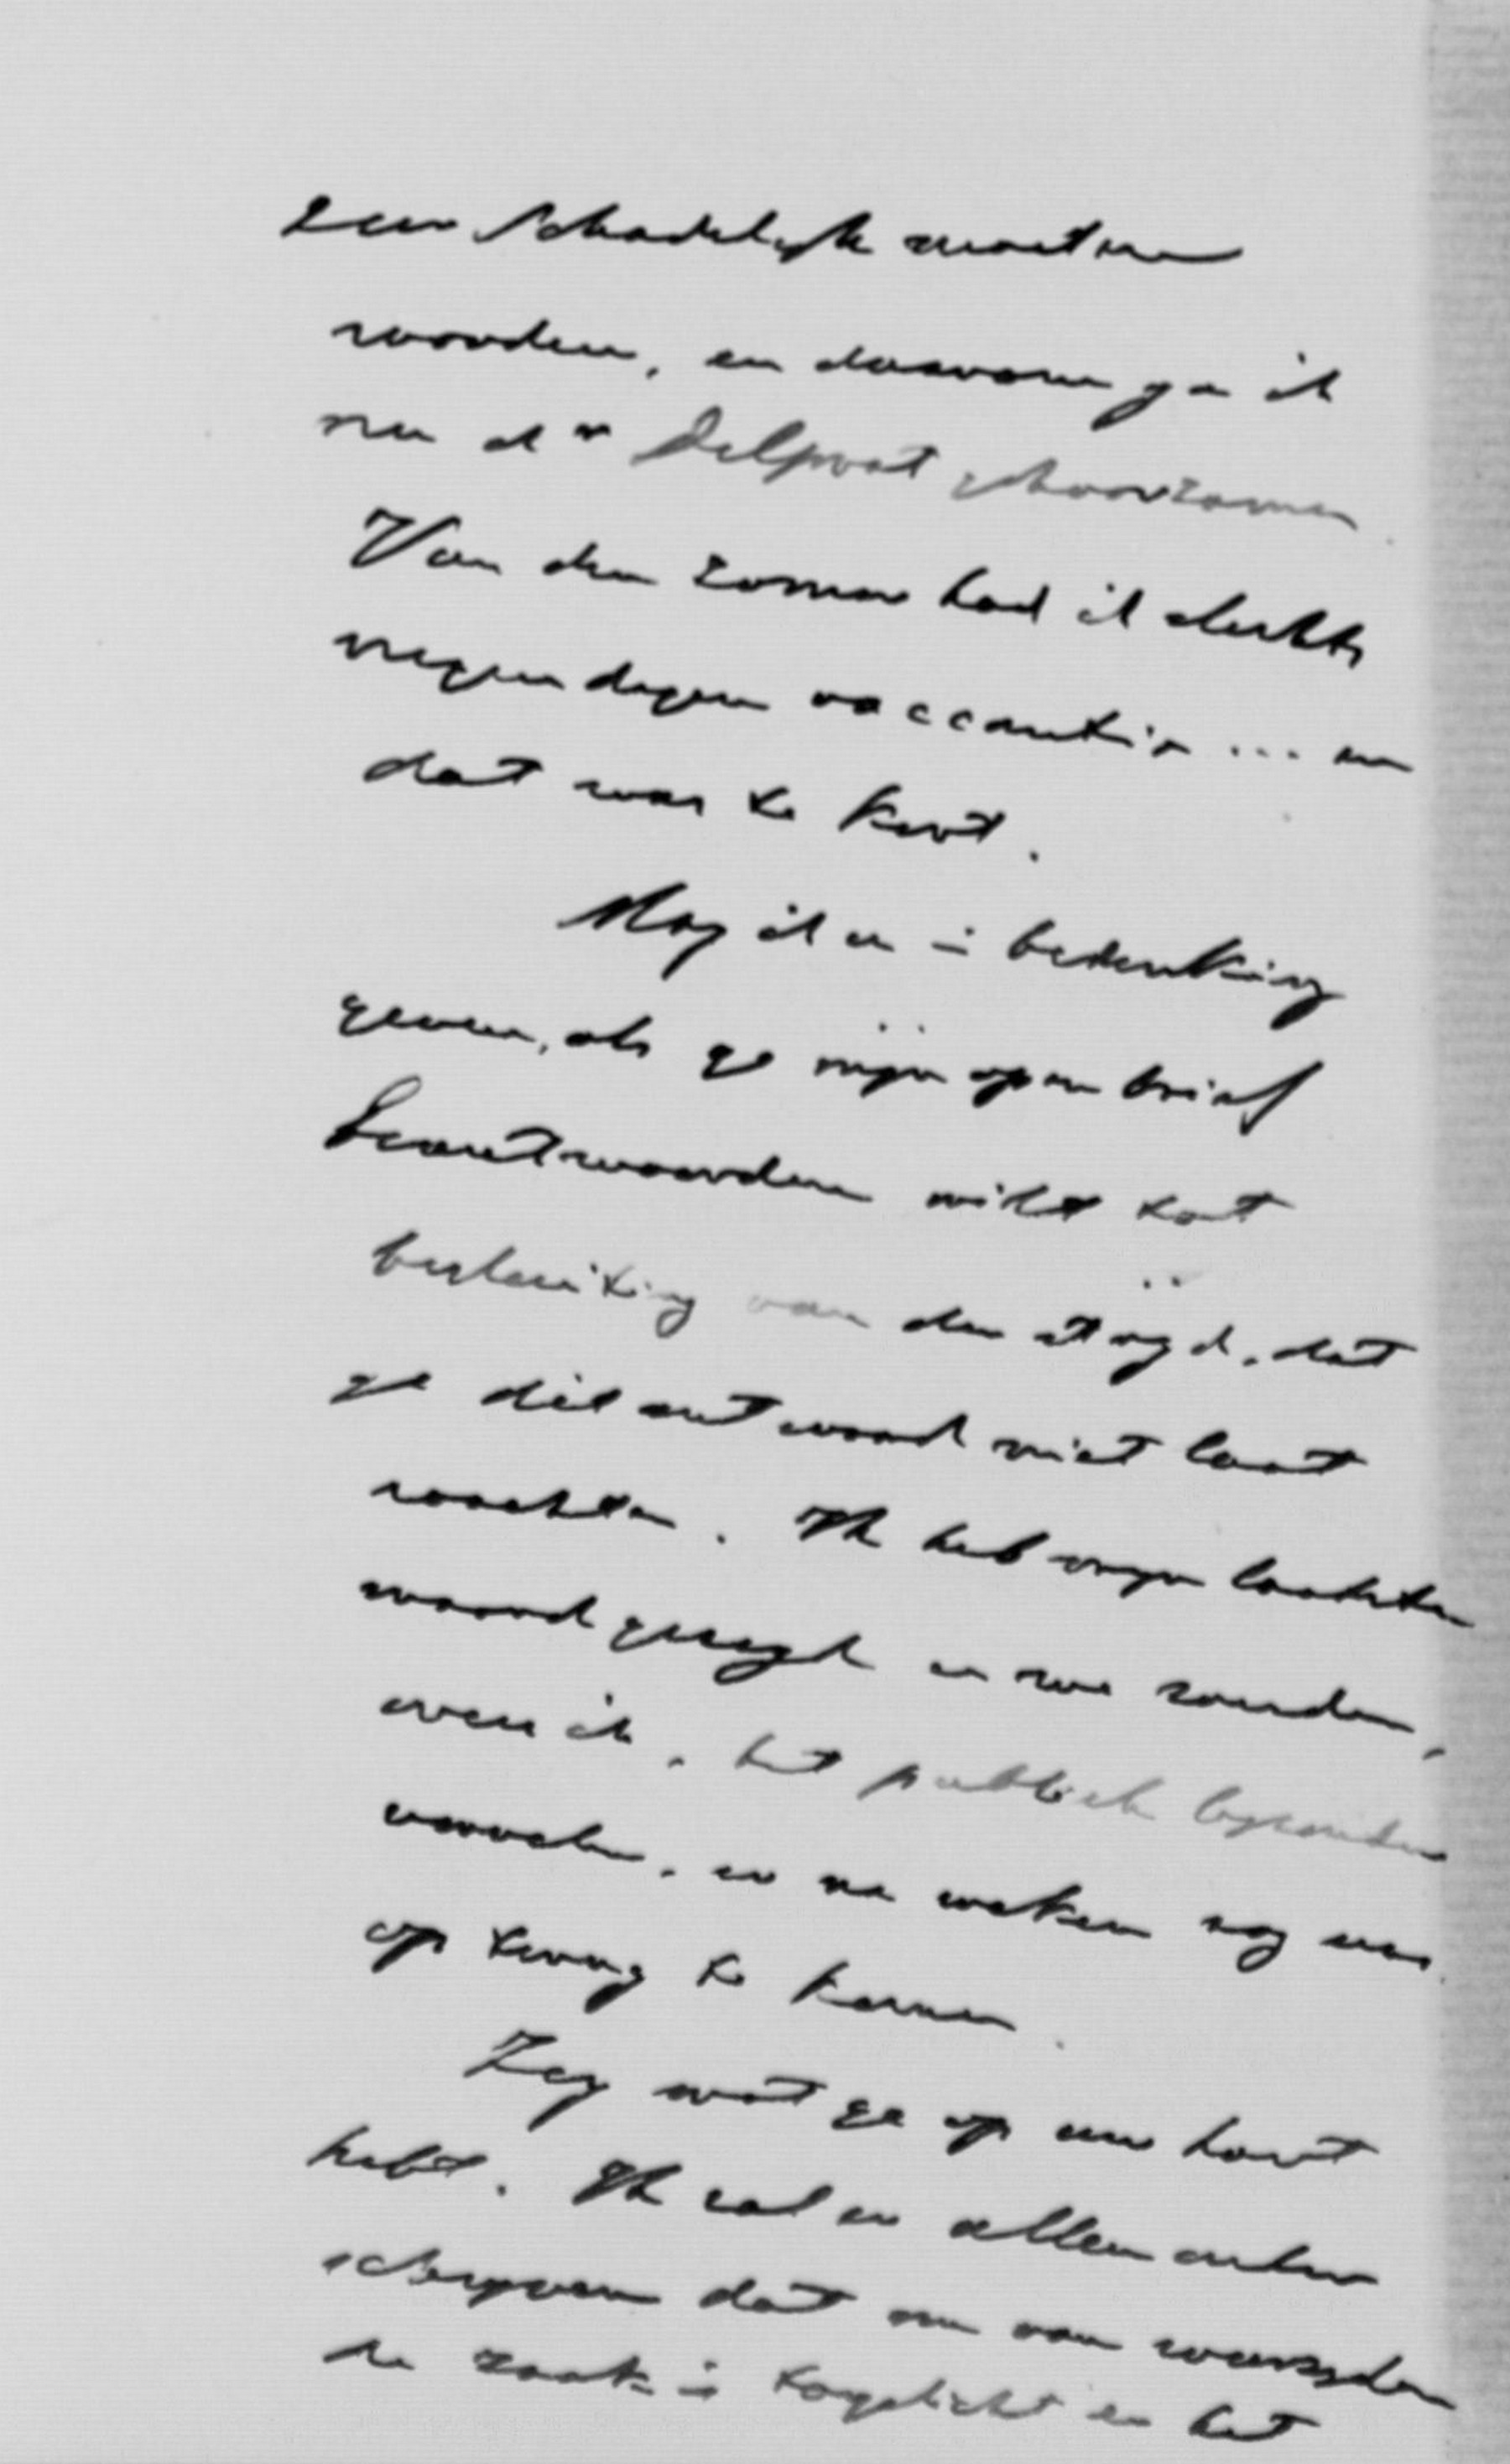 zeer schadelijk moeten
worden, en daarom ga ik
nu dr Delprat gehoorzamen
Van den zomer had ik slechts
negen dagen vaccantie ... en
dat was te kort.
Mag ik u in bedenking
geven, als ge mijn open brief
beantwoorden wilt tot
besluiting van den strijd, dat
ge dit antwoord niet laat
wachten. Ik heb mijn laatste
woord gezegd en we zouden,
even ik, het publiek bijzonder
vervelen, er na weken nog eens
op terug te komen.
Zeg wat ge op uw hart
hebt. Ik zal er alleen onder
schrijven dat nu van weerszijden
de zaak is toegelicht en het